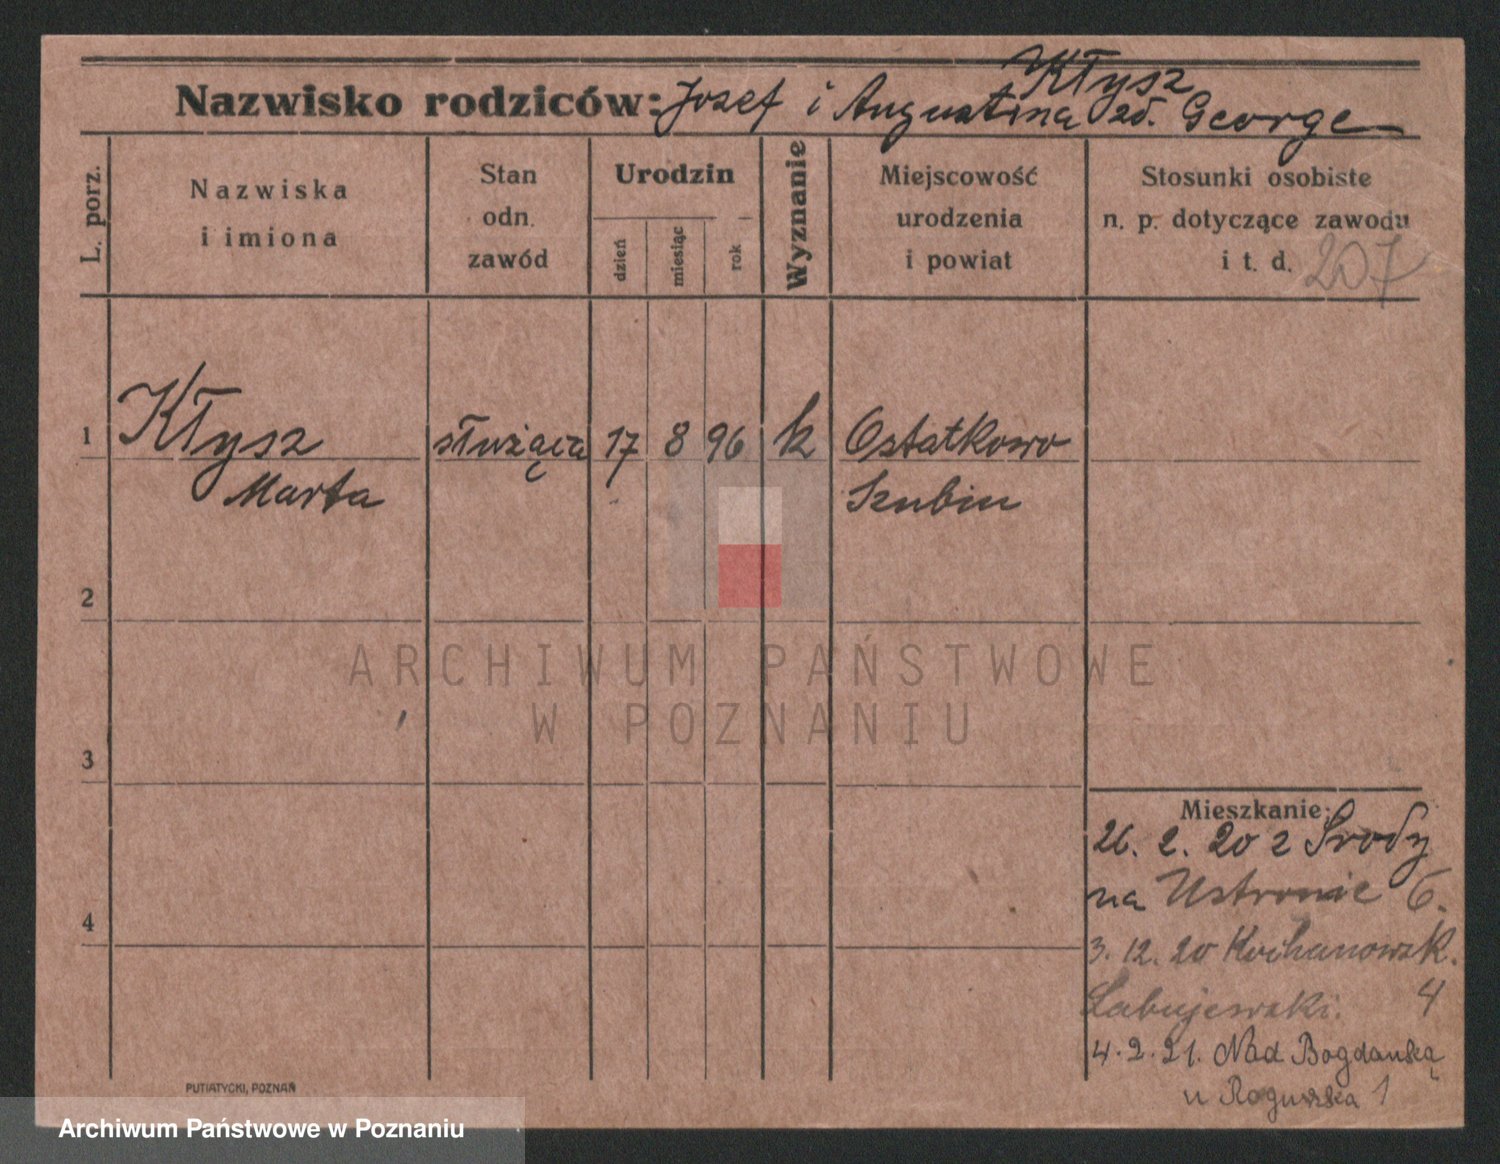 Kłysz
Nazwisko rodziców: Josef i Augustina zd. George
L. porz.
Nazwiska
i imiona
Stan
odn.
zawód
Urodzin
dzień
miesiąc
rok
Wyznanie
Miejscowość
urodzenia
i powiat
Stosunki osobiste
n. p. dotyczące zawodu
i t. d.
207
1 Kłysz służąca 17 8 96 k Ostatkowo
Marta Szubin
2
3
4
Mieszkanie:
26. 2. 20 z Środy
na Ustronie 6.
3. 12. 20 Kochanowsk.
4
4. 2. 21. Nad Bogdanką
u 1
PUTIATYCKI, POZNAŃ
ARCHIWUM PAŃSTWOWE
W POZNANIU
Archiwum Państwowe w Poznaniu